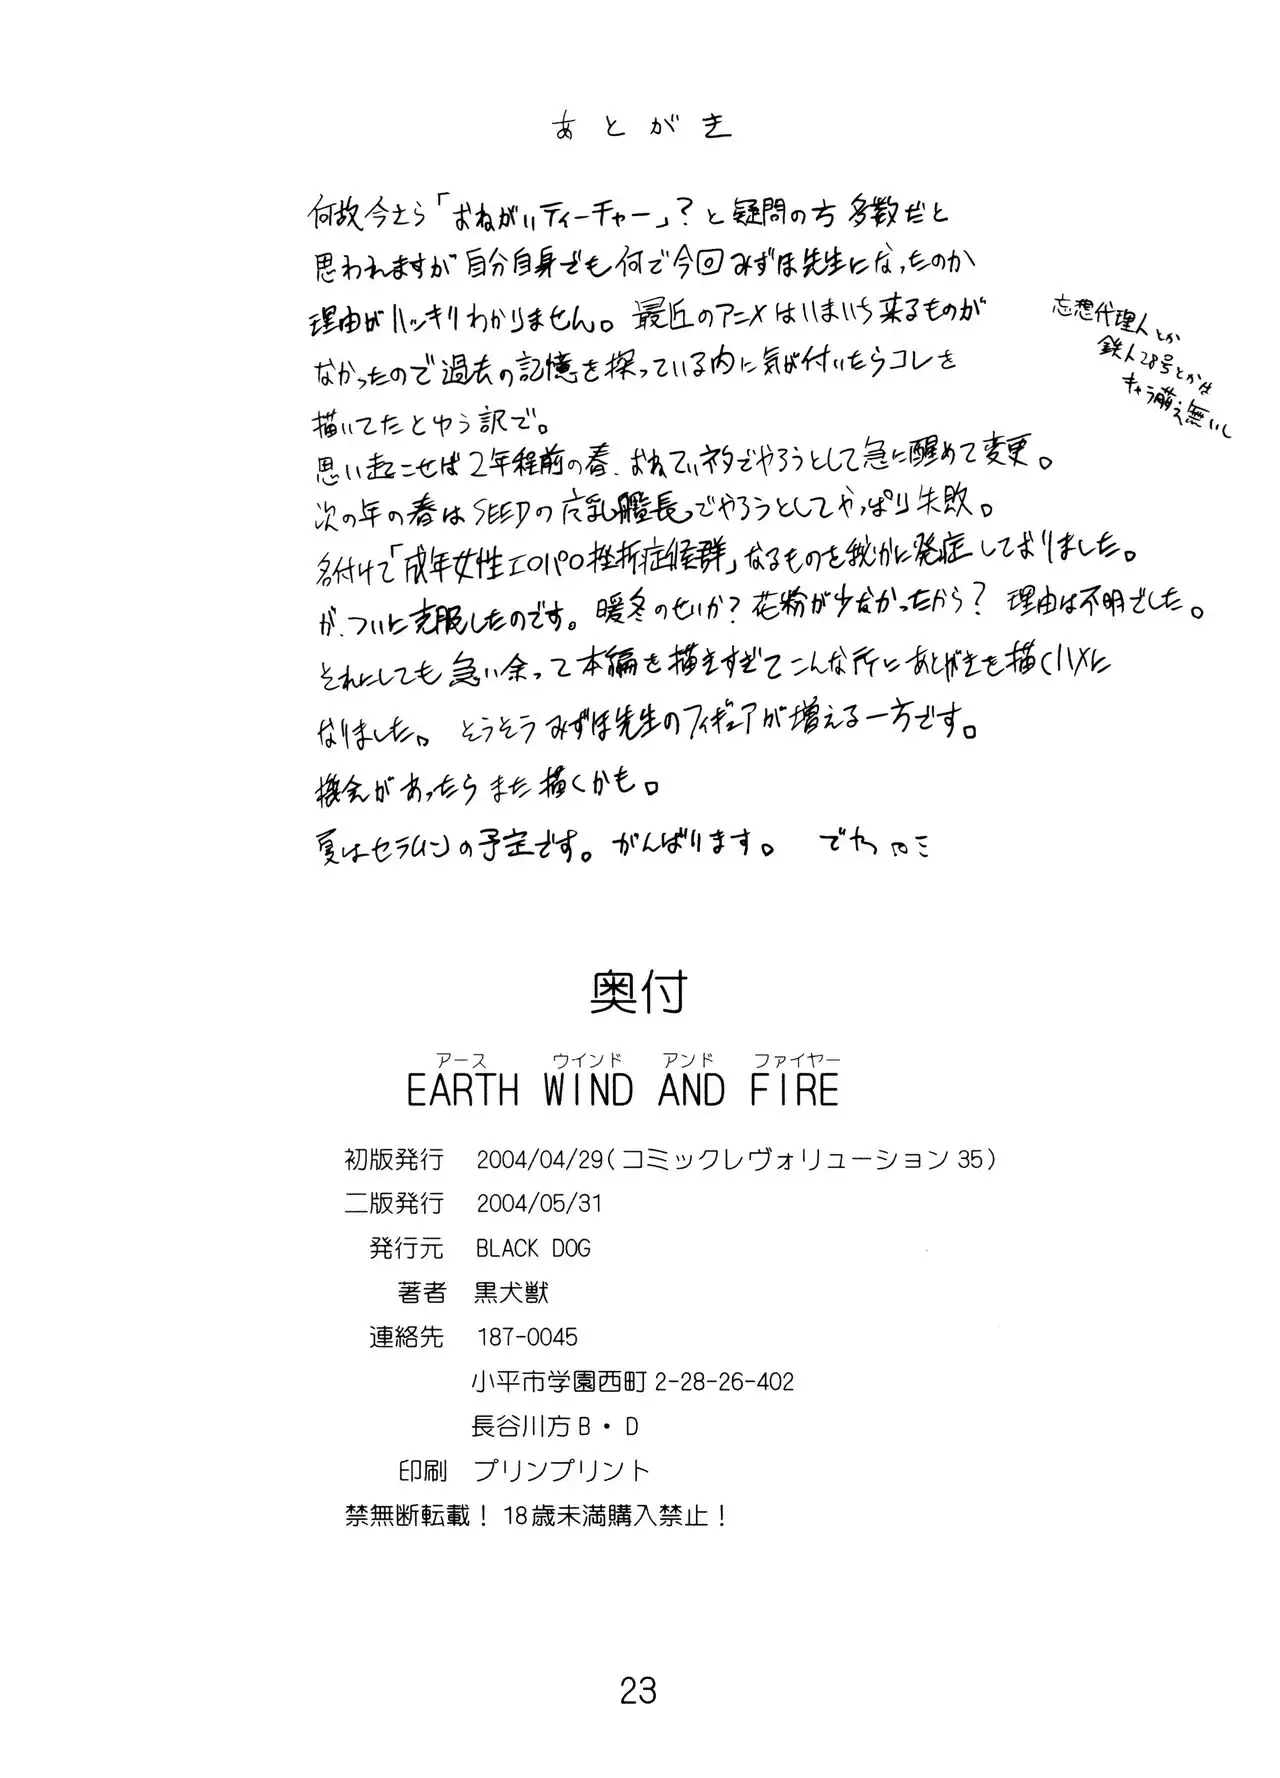 あとがき
何故今さら「おねがいティーチャー」？と疑問の方多数だと
思われますが自分自身でも何で今回みずほ先生になったのか
理由がハッキリわかりません。最近のアニメはいまいち来るものが
なかったので過去の記憶を探っている内に気が付いたらコレを
描いてたとゆう訳で。
妄想代理人とか
鉄人28号とかは
キャラ萌え無いし
思い起こせば2年程前の春、おねてぃネタでやろうとして急に醒めて変更。
次の年の春はSEEDの巨乳艦長でやろうとしてやっぱり失敗。
名付けて「成年女性エロパロ挫折症候群」なるものを密かに発症しておりました。
が、ついに克服したのです。暖冬のせいか？花粉が少なかったから？理由は不明でした。
それにしても急い余って本編を描きすぎてこんな所にあとがきを描くハメに
なりました。そうそうみずほ先生のフィギュアが増える一方です。
機会があったらまた描くかも。
夏はセラムンの予定です。がんばります。でわ
奥付
アース ウインド アンド ファイヤー
EARTH WIND AND FIRE
初版発行 2004/04/29(コミックレヴォリューション35)
二版発行 2004/05/31
発行元 BLACK DOG
著者 黒犬獣
連絡先 187-0045
小平市学園西町2-28-26-402
長谷川方B・D
印刷 プリンプリント
禁無断転載！18歳未満購入禁止！
23